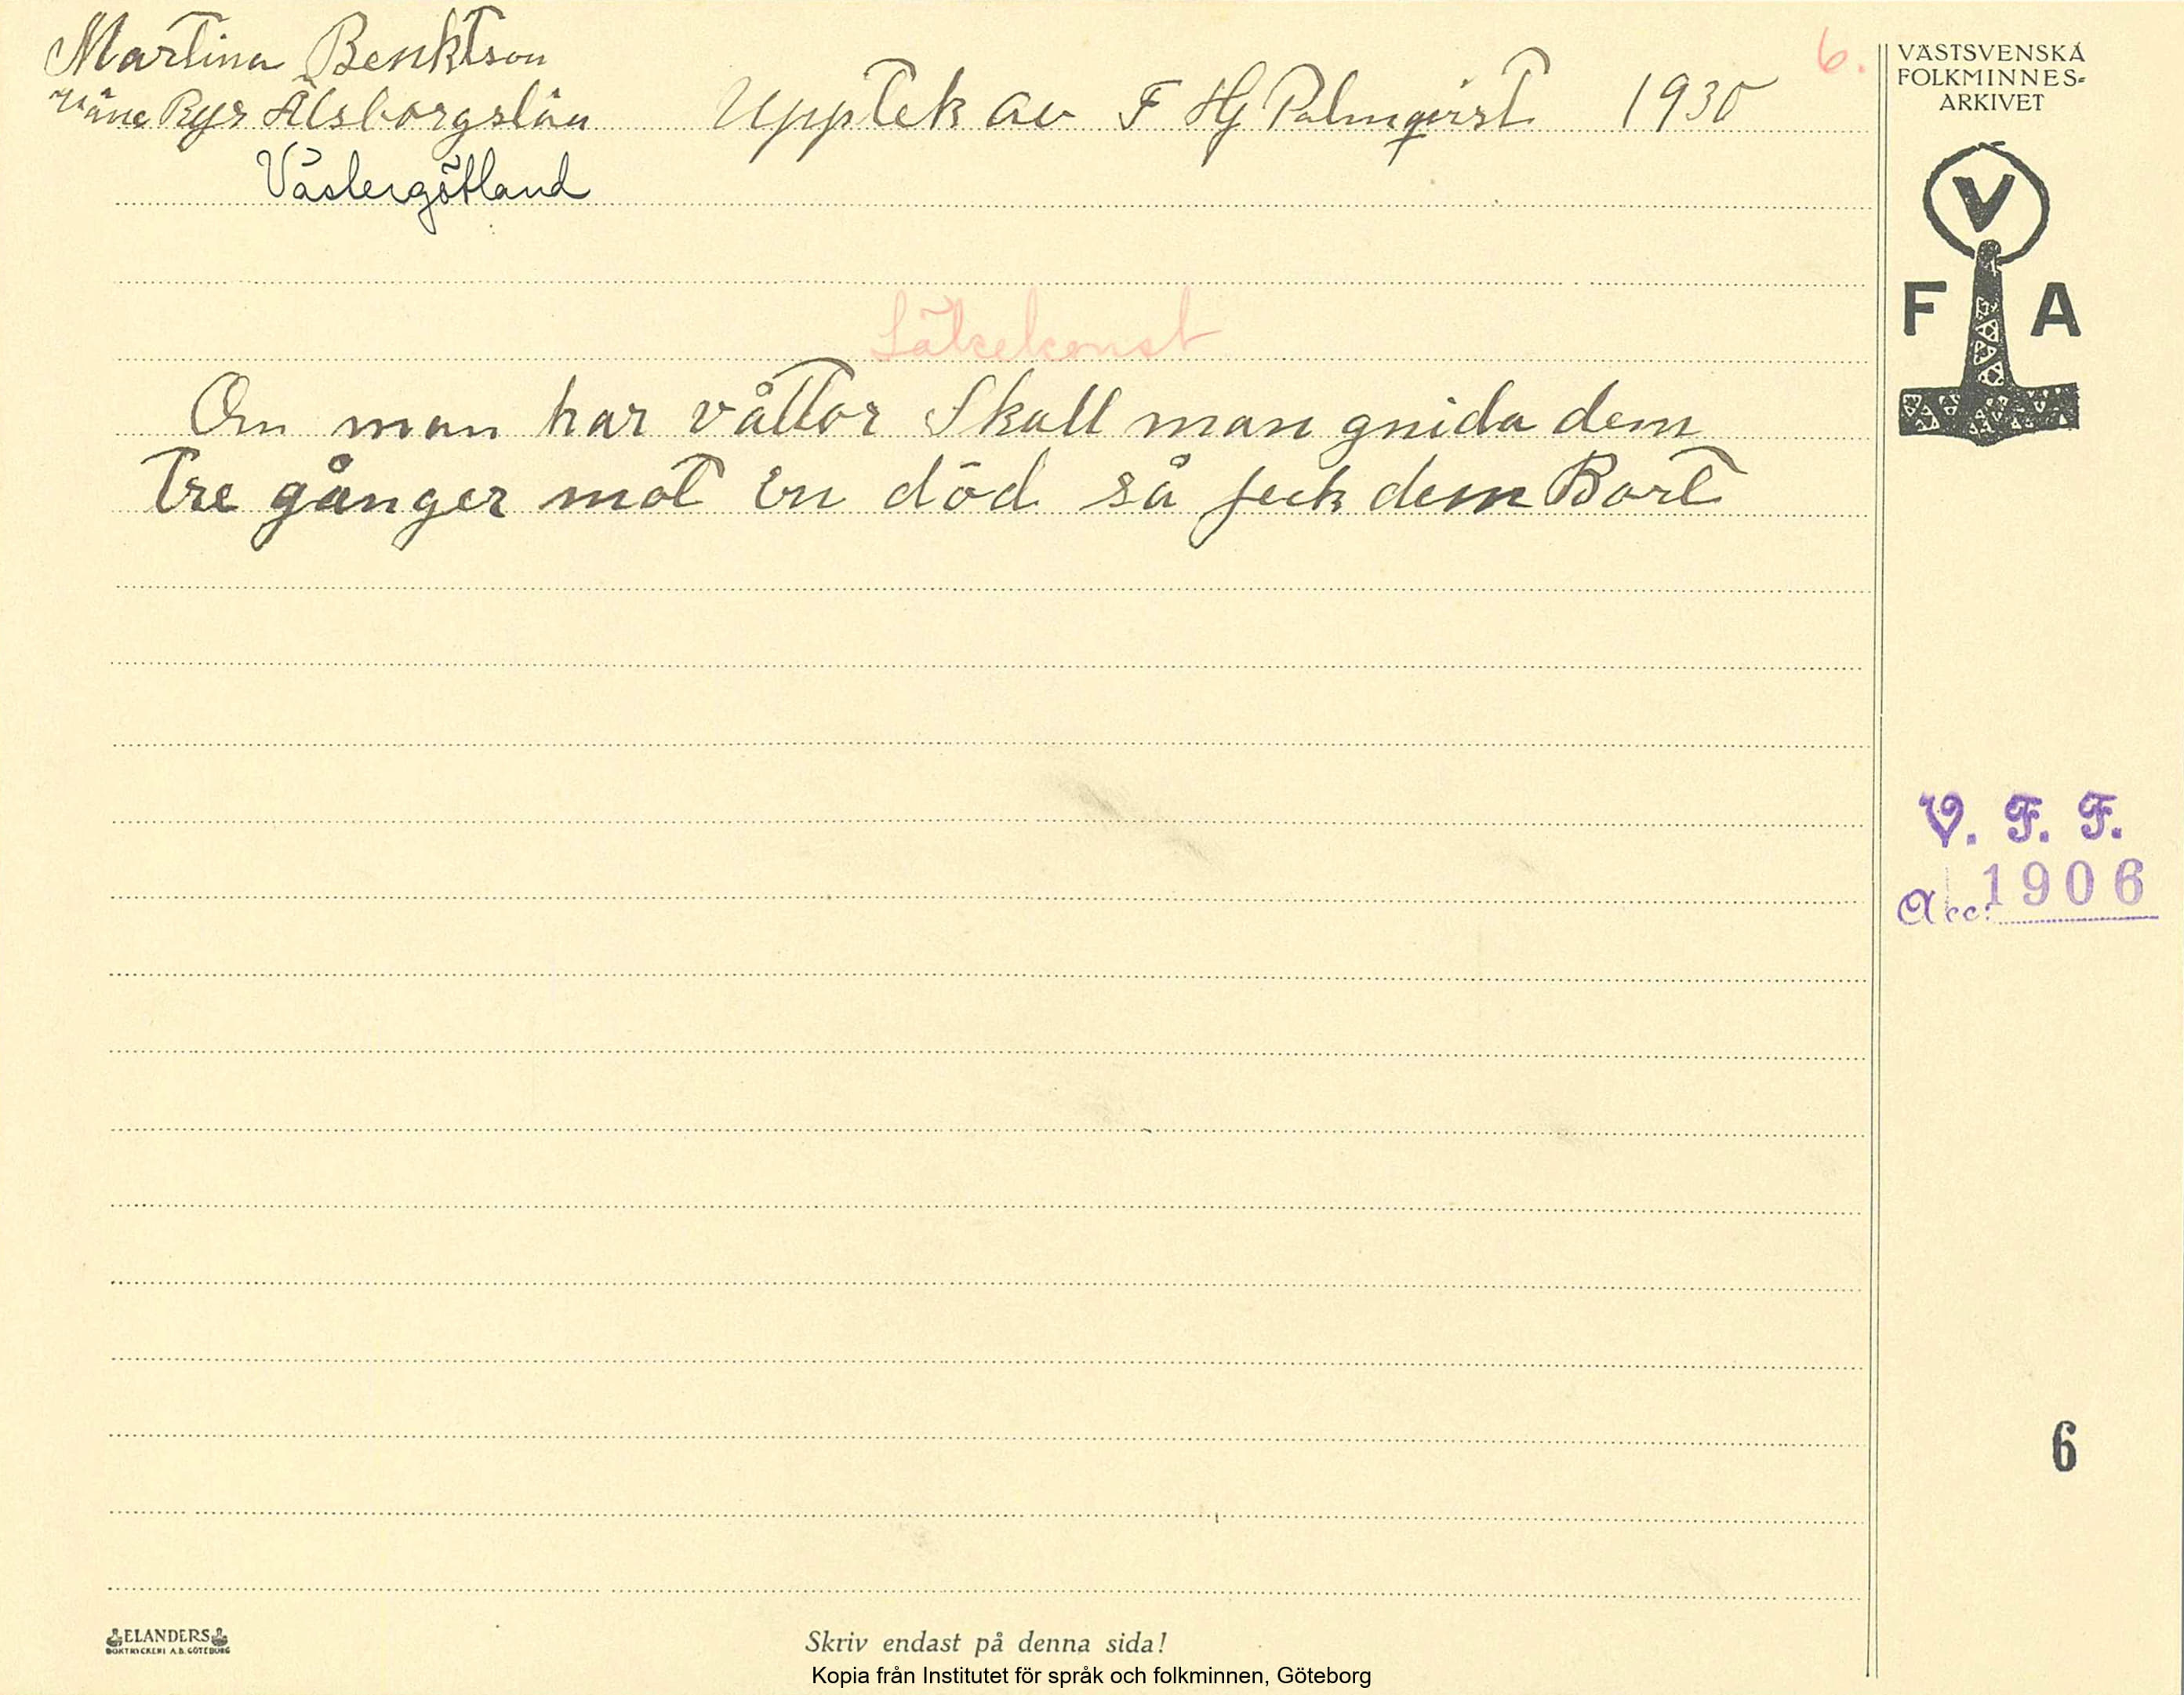 Martina Benktson
Väne Ryr Älsborgslän Upptek av F Hj Palmqvist 1930
6.
Västergötland
Läkekonst
Om man har våttor Skall man gnida dem
tre gånger mot en död så jeck dem Bort
VÄSTSVENSKA
FOLKMINNES-
ARKIVET
V
F A
V. F. F.
Acc: 1906
6
ELANDERS
BOKTRYCKERI A.B. GÖTEBORG
Skriv endast på denna sida!
Kopia från Institutet för språk och folkminnen, Göteborg